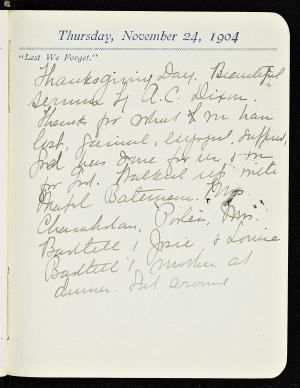 Thursday, November 24, 1904
"Lest We Forget."
Thanksgiving Day. Beautiful
sermon by A. C. Dixon.
Thanks for what we have
lost, gained, enjoyed, suffered,
God has done for us, & we
for God. Walked up with
Bateman. Mrs.
Mrs.
Bartlett, Josie, & Louise
Bartlett, mother at
dinner. Sat around.